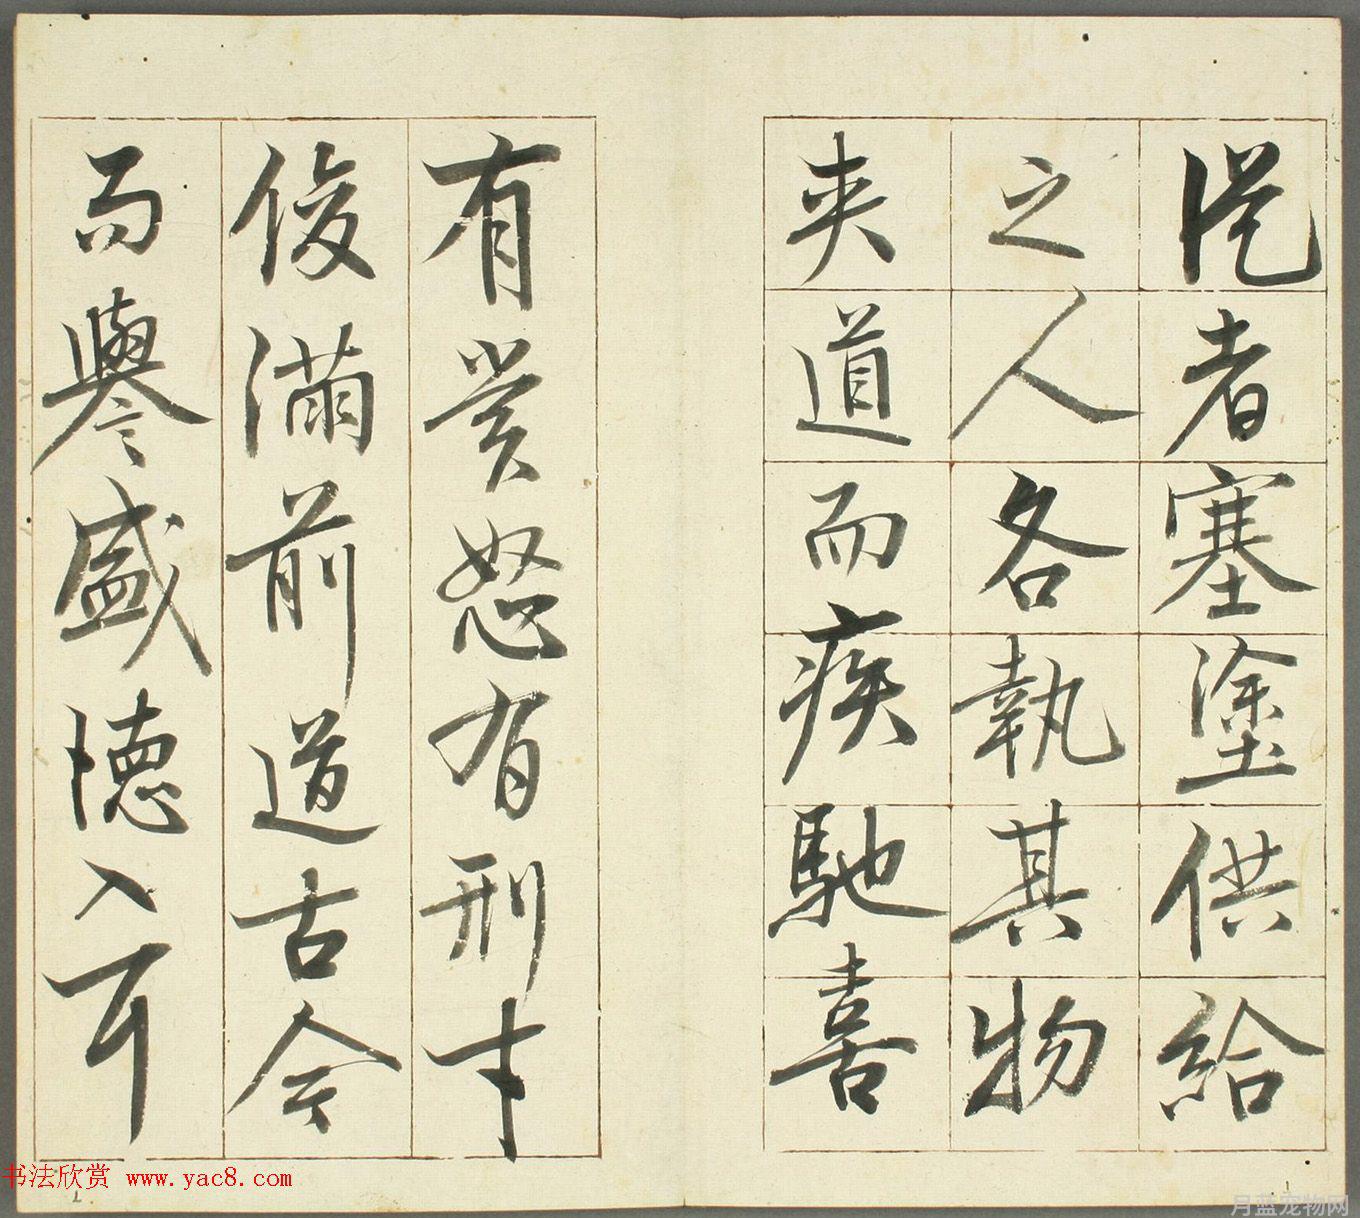 從者塞塗供給
之人各執其物
夾道而疾馳喜
有賞怒有刑才
俊滿前道古今
而譽盛德入耳
书法欣赏 www.yac8.com
月蓝宠物网